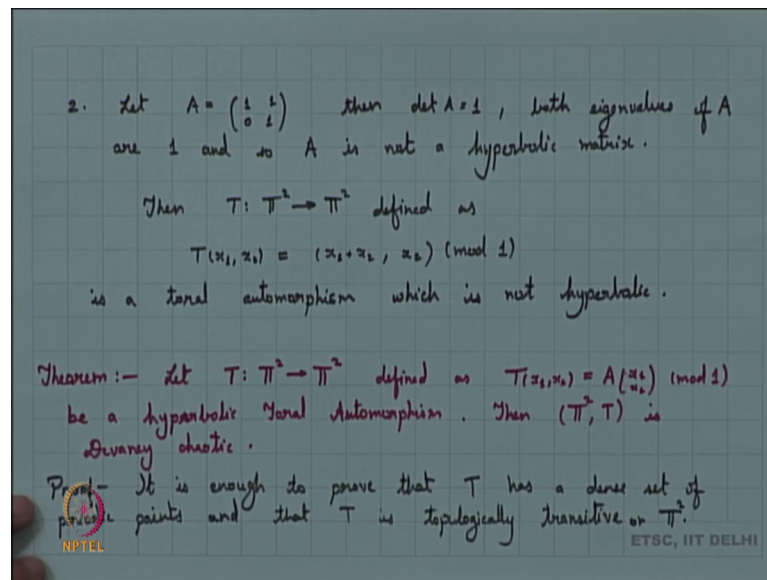 2. Let A = (1 1 0 1) then det A = 1, both eigenvalues of A
are 1 and so A is not a hyperbolic matrix.
Then T: 𝕋² → 𝕋² defined as
T(x₁, x₂) = (x₁+x₂, x₂) (mod 1)
is a toral automorphism which is not hyperbolic.
Theorem:- Let T: 𝕋² → 𝕋² defined as T(x₁,x₂) = A(x₁ x₂) (mod 1)
be a hyperbolic Toral Automorphism. Then (𝕋², T) is
Devaney chaotic.
Proof- It is enough to prove that T has a dense set of
periodic points and that T is topologically transitive on 𝕋².
NPTEL
ETSC, IIT DELHI